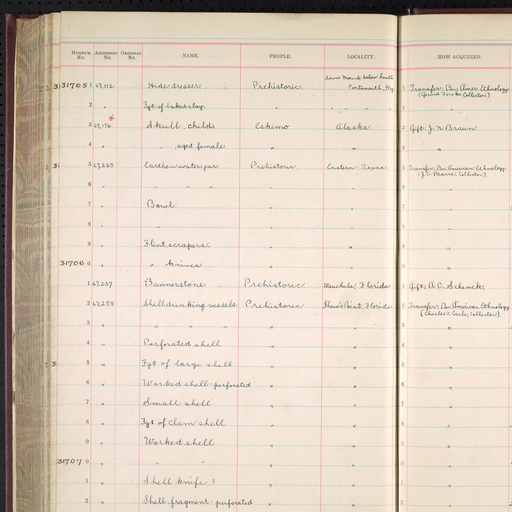 MUSEUM No. ACCESSION No. ORIGINAL No. NAME. PEOPLE. LOCALITY. HOW ACQUIRED.
317051 Hide dresser Prehistoric Mound below South Portsmouth, Ky. 1 Transfer: Bu. Amer. Ethnology
(Gerard Fowke Collector)
2 " Fgt. of baked clay " " 2 "
3 Skull, childs Eskimo Alaska 3 Gift: J. N. Brawn
4 " " , aged female " " 4 "
5 67,225 Earthen water jar Prehistoric Eastern Texas Transfer: Bu. American Ethnology
(J. E. Pearce Collector).
6 " " " " " " "
7 " Bowl " " "
8 " " " " "
9 " Flint scrapers " " "
317060 " " knives " " "
1 67,257 Bannerstone Prehistoric Wauchula, Florida 1 Gift: A. O. Schenck
2 67,258 Shell drinking vessels Prehistoric Shaw's Point, Florida 2 Transfer: Bu. American Ethnology
(Charles T. Earle, Collector).
3 " " " " " " "
4 " Perforated shell " " "
5 " Fgt. of large shell " " "
6 " Worked shell-perforated " " "
7 " Small shell " " "
8 " Fgt. of clam shell " " "
9 " Worked shell " " "
317070 " " " " " "
1 " Shell knife ? " " "
2 " Shell fragment-perforated " " "